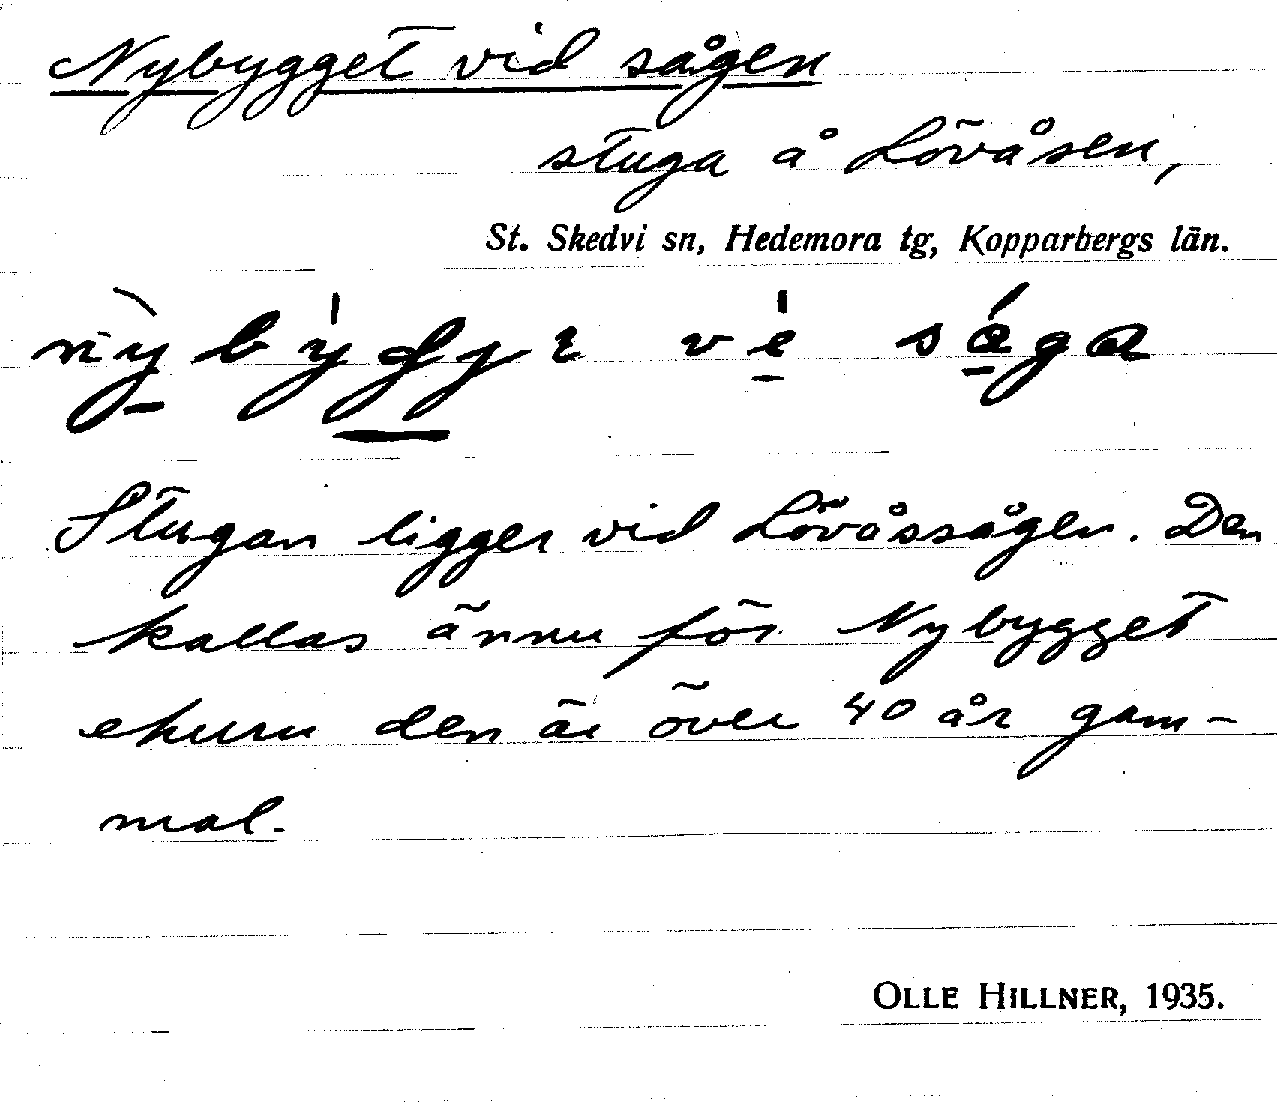 Nybygget vid sågen
stuga å Lövåsen,
St. Skedvi sn, Hedemora tg, Kopparbergs län.
Stugan ligger vid Lövåssågen. Den
kallas ännu för Nybygget
ehuru den är över 40 år gam-
mal.
OLLE HILLNER, 1935.